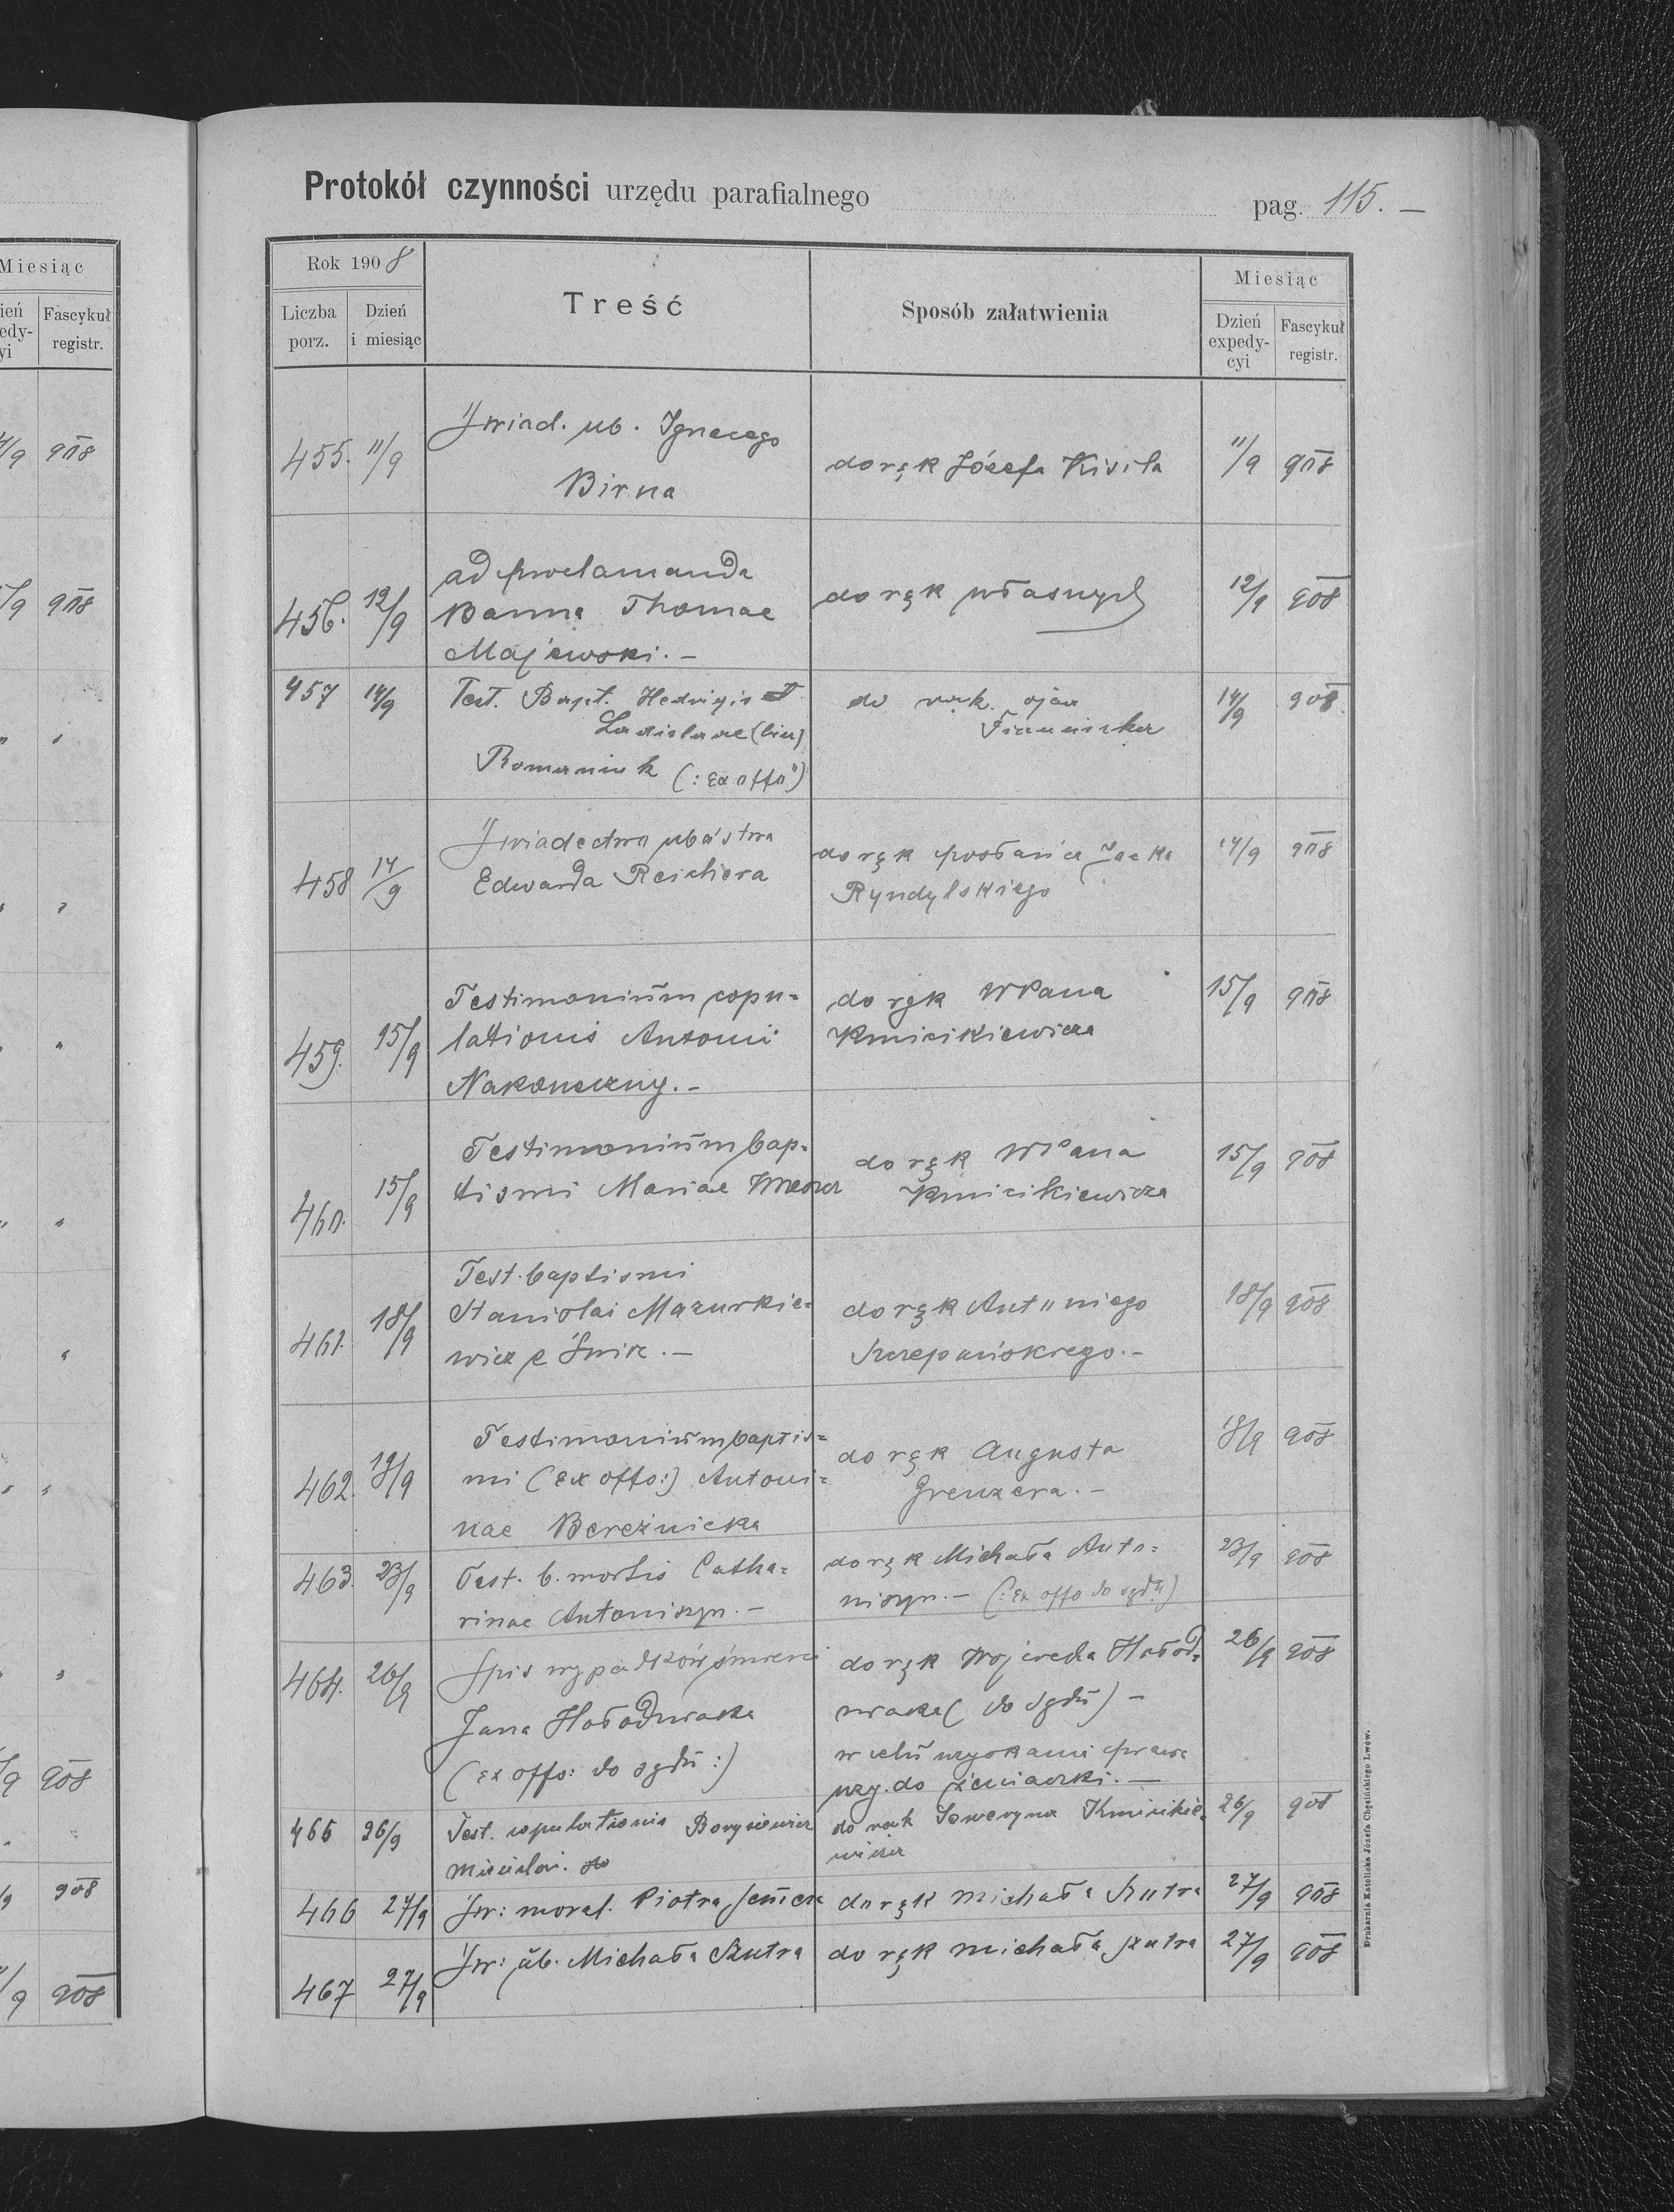 Protokół czynności urzędu parafialnego
pag. 115. —
Miesiąc
Fascykuł
registr.
Rok 1908
Liczba porz.
Dzień i miesiąc
Treść
Sposób załatwienia
Miesiąc
Dzień expedy-
cyi
Fascykuł
registr.
455. 11/9 Świad. ub. Ignacego
Birna
do rąk Józefa Kisiła
11/9 908
456. 12/9 ad proclamanda
Banna Thomae
Majewski. —
do rąk własnych
12/9 908
457 14/9 Test. Bapt. Hedvigis et
Ladislaae (bin)
Romaniuk (: ex offo")
do rąk ojca
Franciszka
14/9 908
458 14/9 Świadectwo ubóstwa
Edwarda Reichera
do rąk posłańca Jacka
Ryndylskiego
14/9 908
459. 15/9 Testimonium copu=
lationis Antonii
Nakoneczny. —
do rąk WPana
Kmicikiewicza
15/9 908
460. 15/9 Testimonium bap=
tismi Mariae
do rąk WPana
Kmicikiewicza
15/9 908
461. 18/9 Test. baptismi
Stanislai Mazurkie=
wicz e Świrz. —
do rąk Antoniego
Szczepańskiego. —
18/9 908
462. 19/9 Testimonium baptis=
mi (Ex offo:) Antoni=
nae Bereżnicka
do rąk Augusta
Grenzera. —
19/9 908
463. 23/9 Test. b. mortis Catha=
rinae Antoniszyn. —
do rąk Michała Anto=
niszyn. — (: Ex offo do sądu)
23/9 908
464. 26/9 Spis wypadków śmierci
Jana Hołodniaka
(ex offo: do sądu :)
do rąk Wojciecha Hołod=
niaka ( do sądu) —
w celu uzyskania prawa
wzy. do
26/9 908
465 26/9 Test. copulationis Borysiewicz
Miecislai.
do rąk Seweryna Kmicikie=
wicza
26/9 908
466 27/9 Św: moral. Piotra
do rąk Michała Szutra
27/9 908
467 27/9 Św: ub. Michała Szutra
do rąk Michała Szutra
27/9 908
Drukarnia Katolicka Józefa Chęcińskiego Lwów.